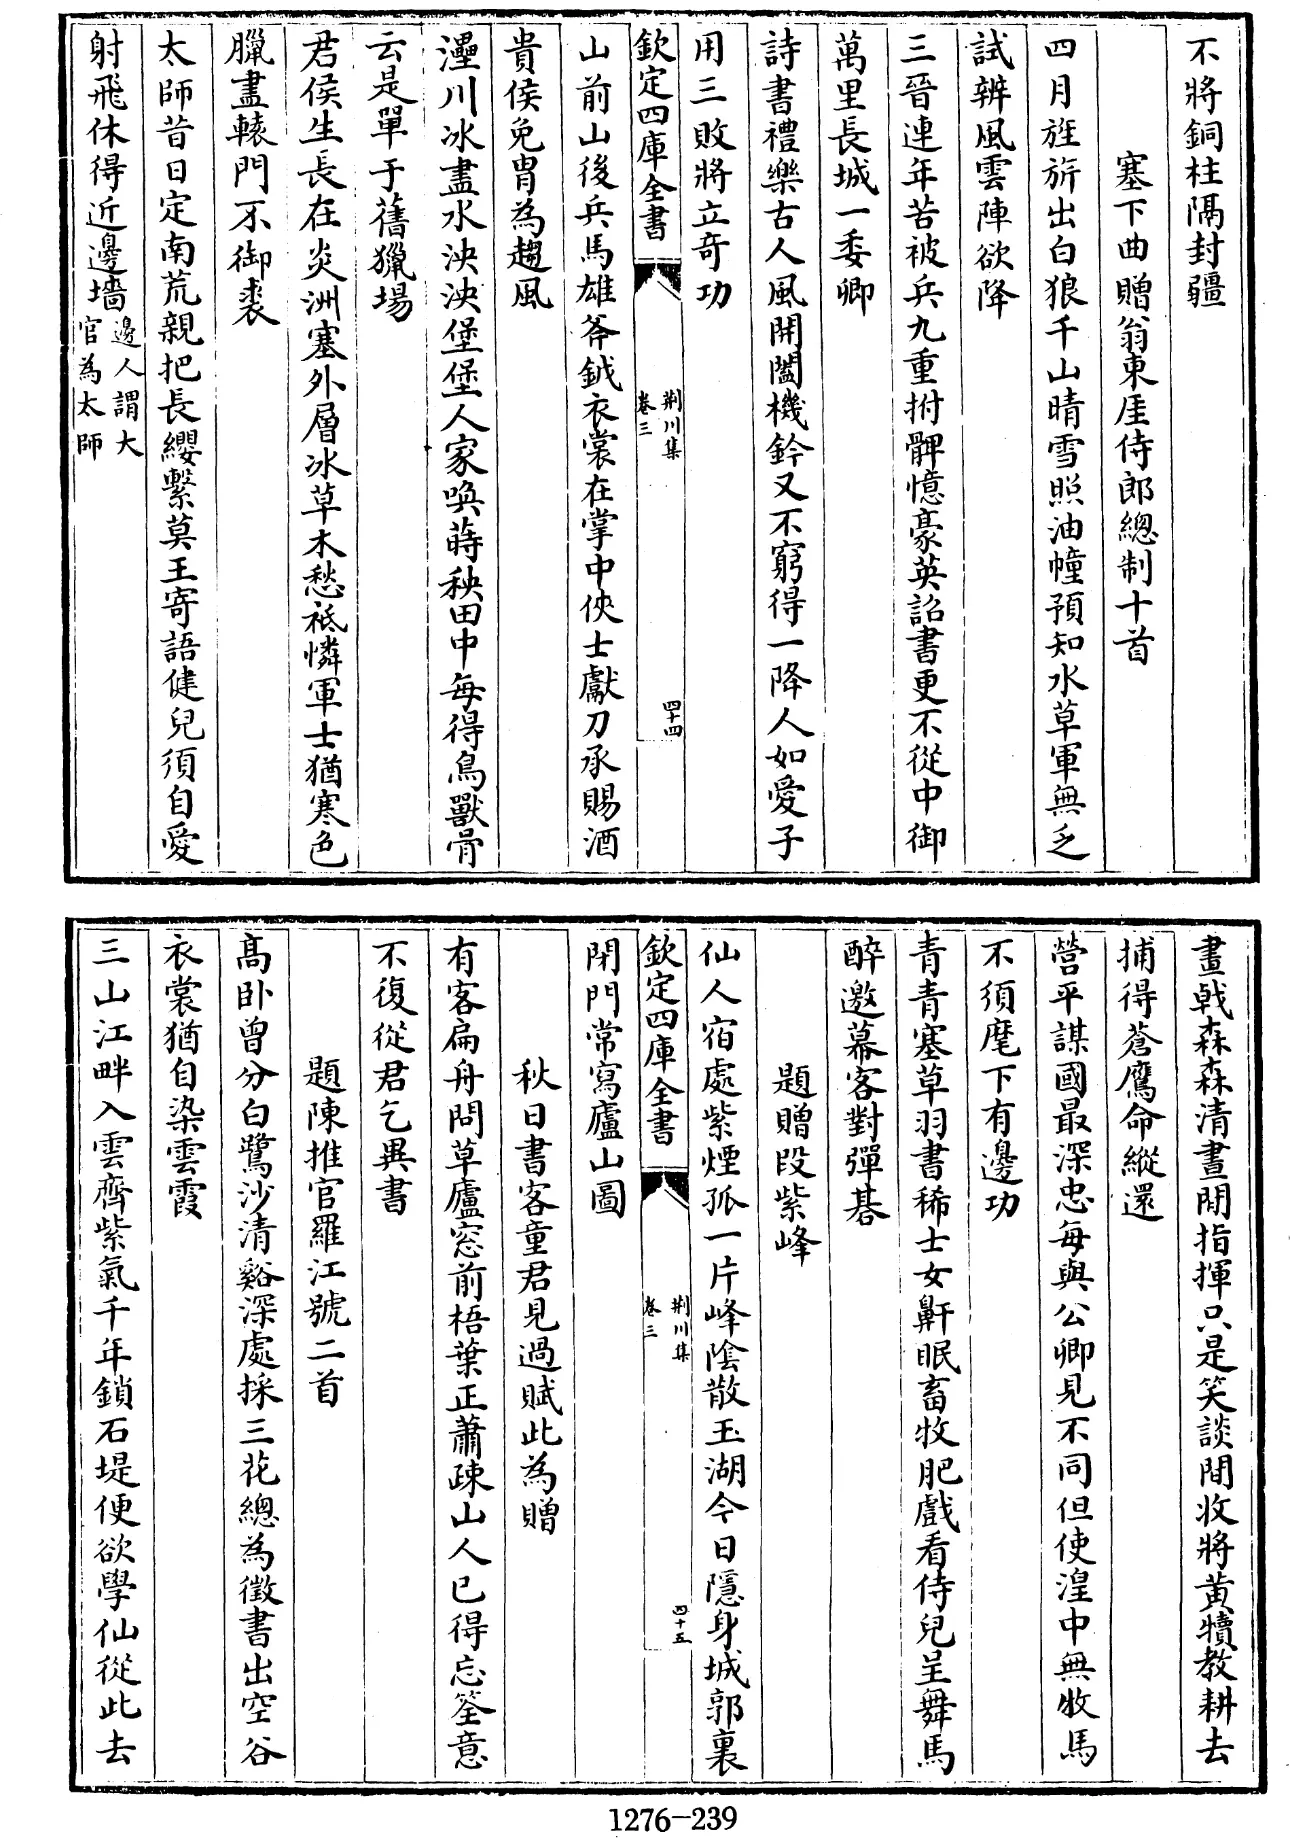 不將銅柱隔封疆
塞下曲贈翁東厓侍郎總制十首
四月旌旂出白狼千山晴雪照油幢預知水草軍無乏
試辨風雲陣欲降
三晉連年苦被兵九重拊髀憶豪英詔書更不從中御
萬里長城一委卿
詩書禮樂古人風開闔機鈐又不窮得一降人如愛子
用三敗將立奇功
欽定四庫全書
荆川集
卷三
四十四
山前山後兵馬雄斧鉞衣裳在掌中俠士獻刀承賜酒
貴侯免胄為趨風
灅川冰盡水泱泱堡堡人家喚蒔秧田中每得鳥獸骨
云是單于舊獵場
君侯生長在炎洲塞外層冰草木愁祗憐軍士猶寒色
臘盡轅門不御裘
太師昔日定南荒親把長纓繫莫王寄語健兒須自愛
射飛休得近邊墻邊人謂大
官為太師
畫戟森森清晝閒指揮只是笑談間收將黃犢教耕去
捕得蒼鷹命縱還
營平謀國最深忠每與公卿見不同但使湟中無牧馬
不須麾下有邊功
青青塞草羽書稀士女鼾眠畜牧肥戲看侍兒呈舞馬
醉邀幕客對彈棊
題贈段紫峰
仙人宿處紫煙孤一片峰陰散玉湖今日隱身城郭裏
欽定四庫全書
荆川集
卷三
四十五
閉門常寫廬山圖
秋日書客童君見過賦此為贈
有客扁舟問草廬窓前梧葉正蕭疎山人已得忘筌意
不復從君乞異書
題陳推官羅江號二首
高卧曾分白鷺沙清谿深處採三花總為徵書出空谷
衣裳猶自染雲霞
三山江畔入雲齊紫氣千年鎖石堤便欲學仙從此去
1276-239